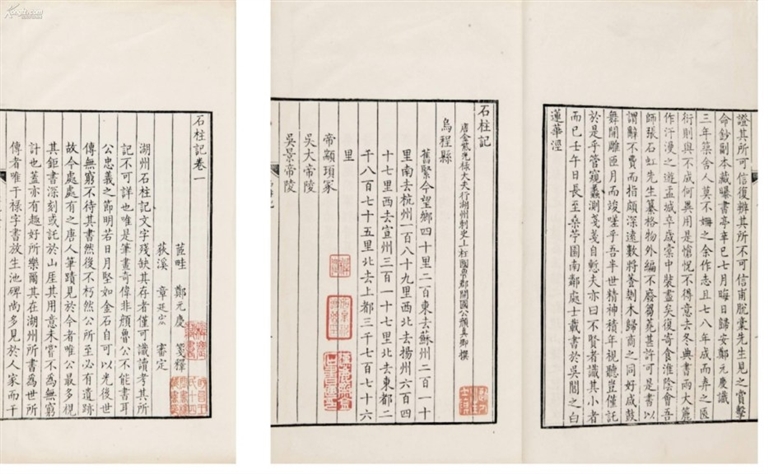 石柱記卷一
茳畦 鄭元慶 箋釋
荻溪 章延宏 審定
湖州石柱記文字殘缺其存者僅可識讀考其所
記不可詳也唯是筆畫奇偉非顏魯公不能書耳
公忠義之節明若日月堅如金石自可以光後世
傳無窮不待其書然後不朽然公所至必有遺跡
故今處處有之唐人筆蹟見於今者唯公最多視
其鉅書深刻或託於山崖其用意未嘗不為無窮
計也蓋亦有趣好所樂爾其在湖州所書為世所
傳者唯干祿字書放生池碑尚多見於人家而干
證其所可信復辨其所不可信甫脫稾先生見之賞擊
命鈔副本藏曝書亭辛巳七月晦日歸安鄭元慶識
三年築舍人莫不姍之余作志且七八年成而棄之
衍則與不成何異用是愴怳不得意去冬典書兩大簏
作汗漫之遊盂城卒歲案中裝盡矣復寄食淮陰會吾
師張石虹先生纂格物外編不廢芻蕘甚許可是書以
謂辭不費而指頗深遠數將歸商之同好咸鼓
舞開雕匝月而竣嗟乎吾半世精神積年視聽豈僅託
於是乎管窺蠡測箋箋自慙夫亦曰不賢者識其小者
而已壬午日長至桑苧園南鄰處士載書於吳閶之白
蓮華涇
石柱記
唐金紫光祿大夫行湖州刺史上柱國魯郡開國公顏真卿撰
烏程縣
舊緊今望鄉四十里二百東去蘇州二百一十
里南去杭州一百八十九里西北去揚州六百四
十七里西去宣州三百一十七里北去東都二
千八百七十五里北去上都三千七百七十六
里
帝顓頊冢
吳大帝陵
吳景帝陵